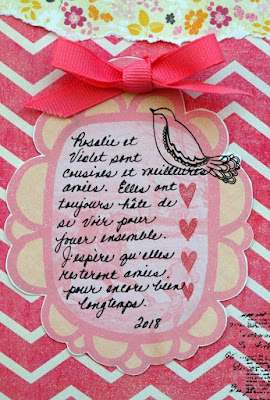 Rosalie et
Violet sont
cousines et meilleures
amies. Elles ont
toujours hâte de
se voir pour
jouer ensemble.
J'espère qu'elles
resteront amies
pour encore bien
longtemps.
2018